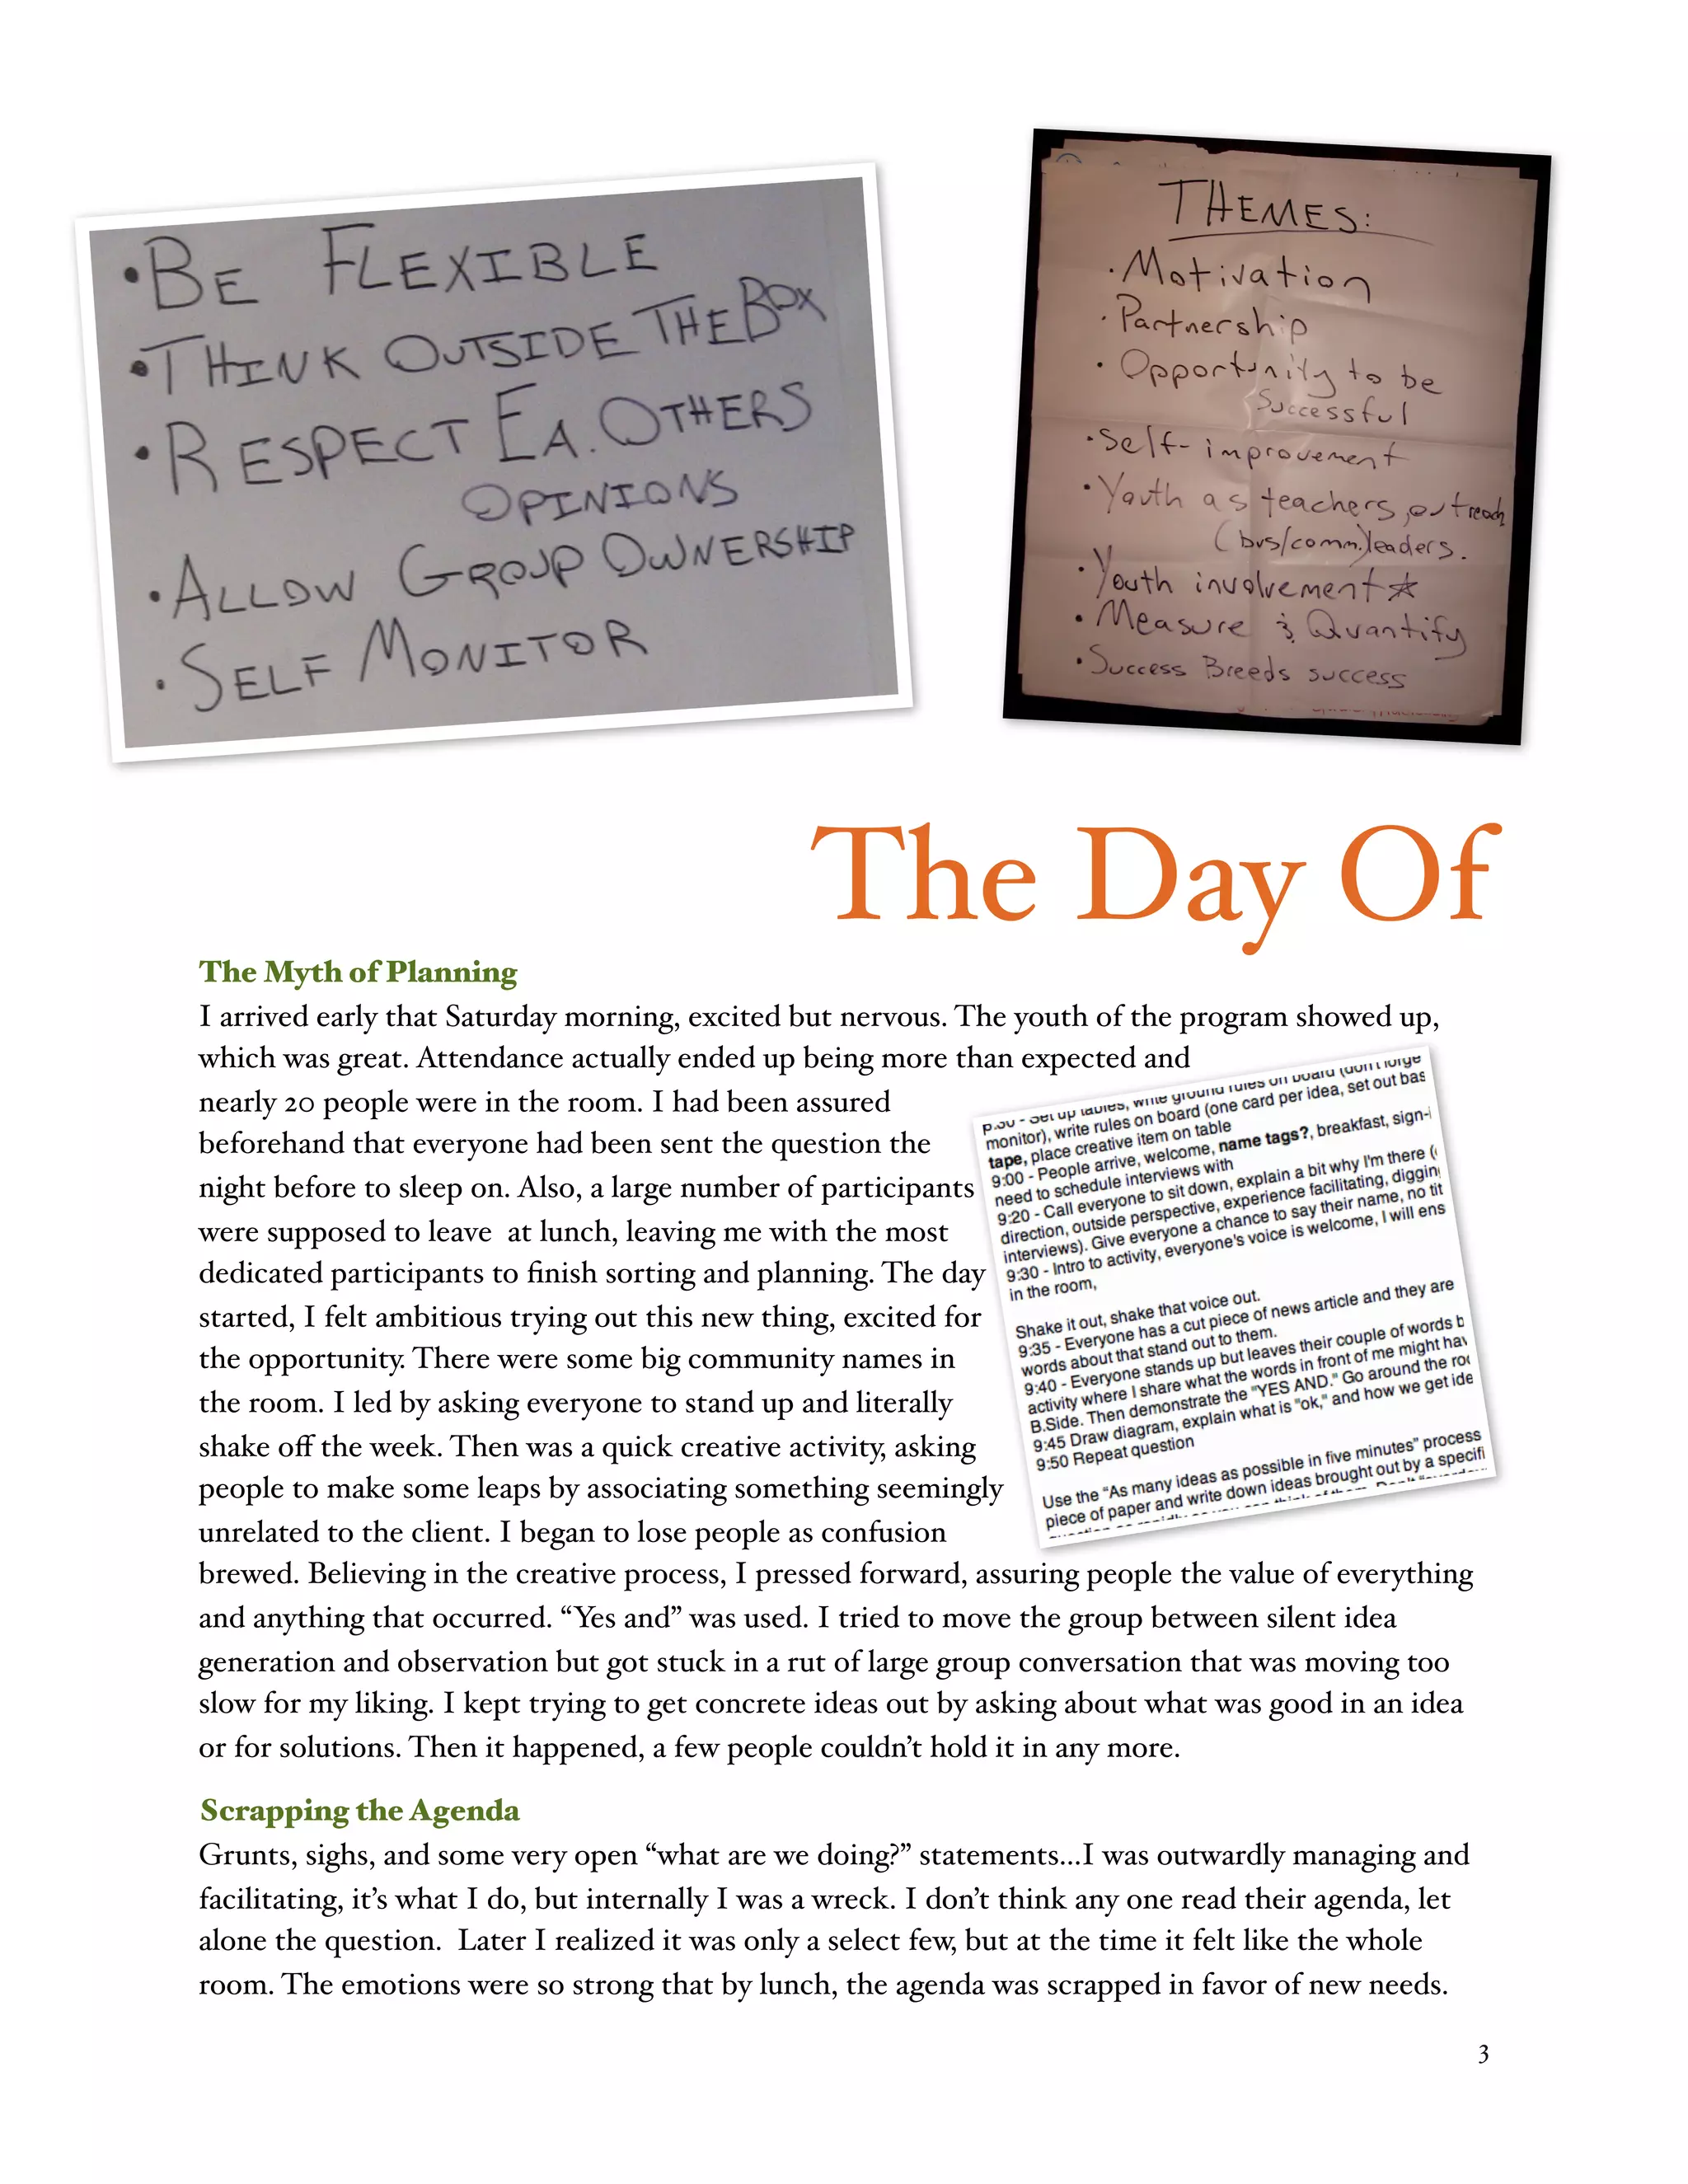 • BE FLEXIBLE
• THINK OUTSIDE THE BOX
• RESPECT EA. OTHERS
OPINIONS
• ALLOW GROUP OWNERSHIP
• SELF MONITOR
THEMES:
• Motivation
• Partnership
• Opportunity to be
Successful
• Self-improvement
• Youth as teachers, outreach
(bus/comm.)leaders.
• Youth involvement ☆
• Measure & Quantify
• Success Breeds success
The Day Of
The Myth of Planning
I arrived early that Saturday morning, excited but nervous. The youth of the program showed up,
which was great. Attendance actually ended up being more than expected and
nearly 20 people were in the room. I had been assured
beforehand that everyone had been sent the question the
night before to sleep on. Also, a large number of participants
were supposed to leave at lunch, leaving me with the most
dedicated participants to finish sorting and planning. The day
started, I felt ambitious trying out this new thing, excited for
the opportunity. There were some big community names in
the room. I led by asking everyone to stand up and literally
shake off the week. Then was a quick creative activity, asking
people to make some leaps by associating something seemingly
unrelated to the client. I began to lose people as confusion
brewed. Believing in the creative process, I pressed forward, assuring people the value of everything
and anything that occurred. “Yes and” was used. I tried to move the group between silent idea
generation and observation but got stuck in a rut of large group conversation that was moving too
slow for my liking. I kept trying to get concrete ideas out by asking about what was good in an idea
or for solutions. Then it happened, a few people couldn’t hold it in any more.
:30 - Set up tables, write ground rules on board (don't forge
monitor), write rules on board (one card per idea, set out bas
tape, place creative item on table
9:00 - People arrive, welcome, name tags?, breakfast, sign-i
need to schedule interviews with
9:20 - Call everyone to sit down, explain a bit why I'm there (
direction, outside perspective, experience facilitating, diggin
interviews). Give everyone a chance to say their name, no tit
9:30 - Intro to activity, everyone's voice is welcome, I will ens
in the room,
Shake it out, shake that voice out.
9:35 - Everyone has a cut piece of news article and they are
words about that stand out to them.
9:40 - Everyone stands up but leaves their couple of words b
activity where I share what the words in front of me might hav
B.Side. Then demonstrate the "YES AND." Go around the roo
9:45 Draw diagram, explain what is "ok," and how we get ide
9:50 Repeat question
Use the "As many ideas as possible in five minutes" process
piece of paper and write down ideas brought out by a specifi
Scrapping the Agenda
Grunts, sighs, and some very open “what are we doing?” statements...I was outwardly managing and
facilitating, it’s what I do, but internally I was a wreck. I don’t think any one read their agenda, let
alone the question. Later I realized it was only a select few, but at the time it felt like the whole
room. The emotions were so strong that by lunch, the agenda was scrapped in favor of new needs.
3